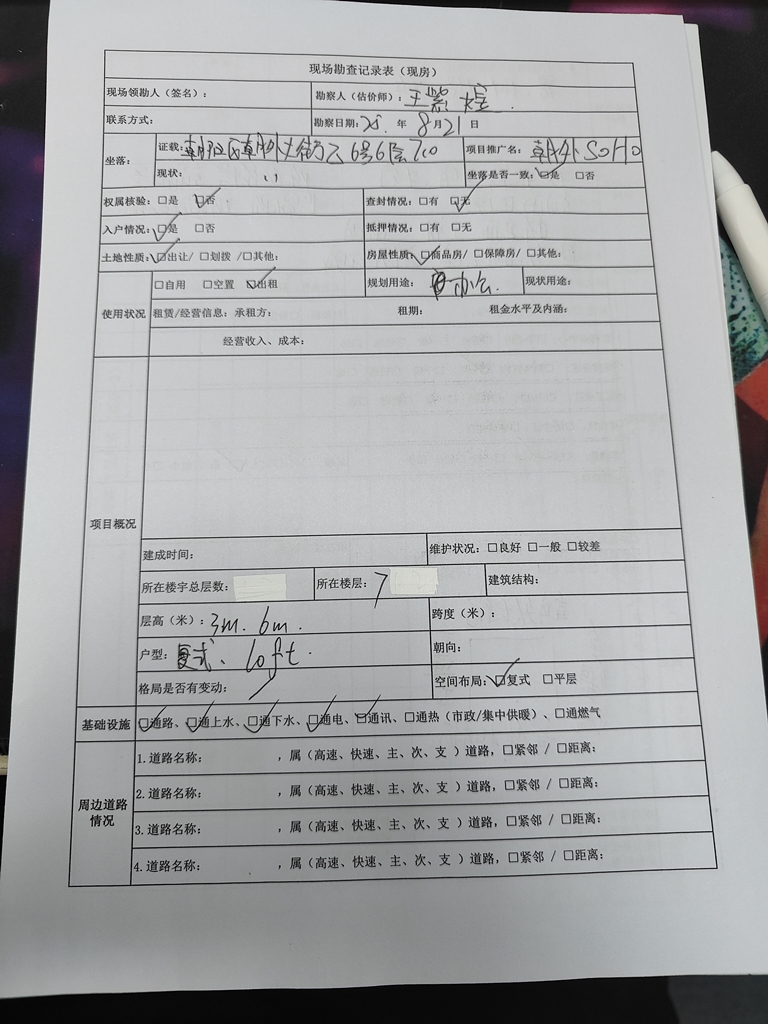 现场勘查记录表（现房）
现场领勘人（签名）： 勘察人（估价师）：王
联系方式： 勘察日期：25 年 8月21日
坐落： 证载：朝阳区朝外大街乙6号6层700 项目推广名：朝外SOHO
现状： 〃 坐落是否一致：☑是 □否
权属核验：□是 ☑否 查封情况：□有 ☑无
入户情况：☑是 □否 抵押情况：□有 □无
土地性质：☑出让/ □划拨 /□其他： 房屋性质：☑商品房/ □保障房/ □其他：
使用状况 □自用 □空置 ☑出租 规划用途：办公 现状用途：
租赁/经营信息：承租方： 租期： 租金水平及内涵：
经营收入、成本：
项目概况
建成时间： 维护状况：□良好 □一般 □较差
所在楼宇总层数： 所在楼层：7 建筑结构：
层高（米）：3m. 6m. 跨度（米）：
户型：复式、loft. 朝向：
格局是否有变动： 空间布局：☑复式 □平层
基础设施 ☑通路、☑通上水、☑通下水、☑通电、☑通讯、□通热（市政/集中供暖）、□通燃气
周边道路情况 1.道路名称： ，属（高速、快速、主、次、支 ）道路，□紧邻 / □距离：
2.道路名称： ，属（高速、快速、主、次、支 ）道路，□紧邻 / □距离：
3.道路名称： ，属（高速、快速、主、次、支 ）道路，□紧邻 / □距离：
4.道路名称： ，属（高速、快速、主、次、支 ）道路，□紧邻 / □距离：